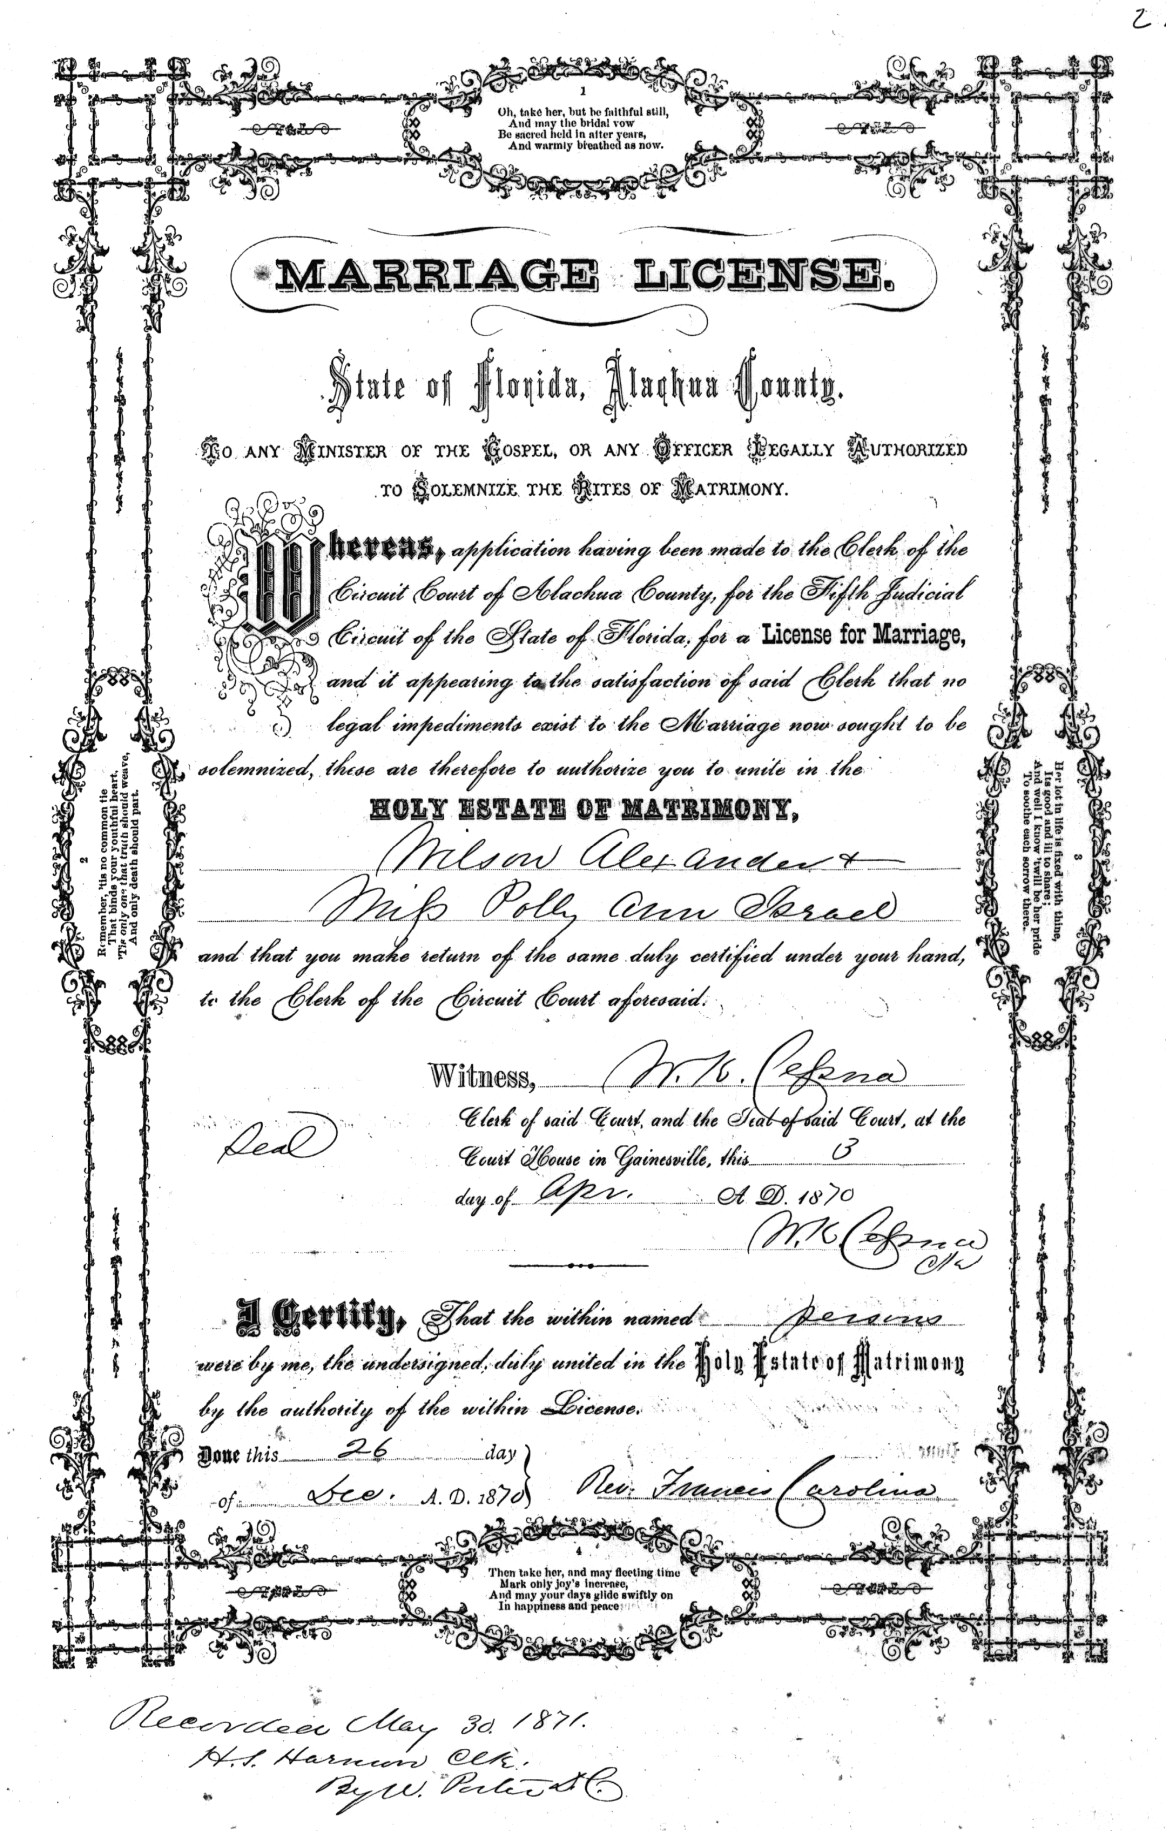 2.
1
Oh, take her, but be faithful still,
And may the bridal vow
Be sacred held in after years,
And warmly breathed as now.
MARRIAGE LICENSE.
State of Florida, Alachua County.
TO ANY MINISTER OF THE GOSPEL, OR ANY OFFICER LEGALLY AUTHORIZED
TO SOLEMNIZE THE RITES OF MATRIMONY.
Whereas, application having been made to the Clerk of the
Circuit Court of Alachua County, for the Fifth Judicial
Circuit of the State of Florida, for a License for Marriage,
and it appearing to the satisfaction of said Clerk that no
legal impediments exist to the Marriage now sought to be
solemnized, these are therefore to authorize you to unite in the
HOLY ESTATE OF MATRIMONY,
Wilson Alexander &
Miss Polly Ann Israel
and that you make return of the same duly certified under your hand,
to the Clerk of the Circuit Court aforesaid.
2
Remember, 'tis no common tie
That binds your youthful heart,
'Tis only one that truth should weave,
And only death should part.
3
Her lot in life is fixed with thine,
Its good and ill to share;
And well I know 'twill be her pride
To soothe each sorrow there.
Witness, W. K. Cessna
Clerk of said Court, and the Seal of said Court, at the
Seal
Court House in Gainesville, this 13
day of Apr. A. D. 1870
W. K. Cessna
Clk
I Certify, That the within named persons
were by me, the undersigned, duly united in the Holy Estate of Matrimony
by the authority of the within License.
Done this 26 day
of Dec. A. D. 1870 Rev. Francis Carolina
4
Then take her, and may fleeting time
Mark only joy's increase,
And may your days glide swiftly on
In happiness and peace
Recorded May 30. 1871.
H. S. Harmon Clk.
By W. Porter D.C.